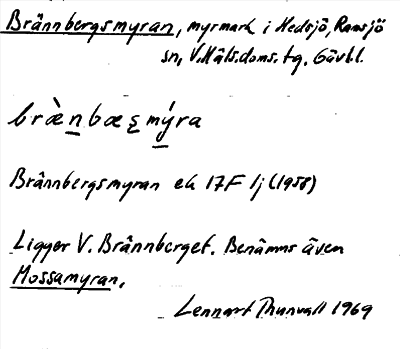 Brännbergsmyran, myrmark i Hedsjö, Ramsjö
sn, V. Häls. doms. tg. Gävl.l.
bræ̀n̲bæs̲mýra
Brännbergsmyran ek 17F 1j (1958)
Ligger V. Brännberget. Benämns även
Mossamyran.
Lennart Thunvall 1969